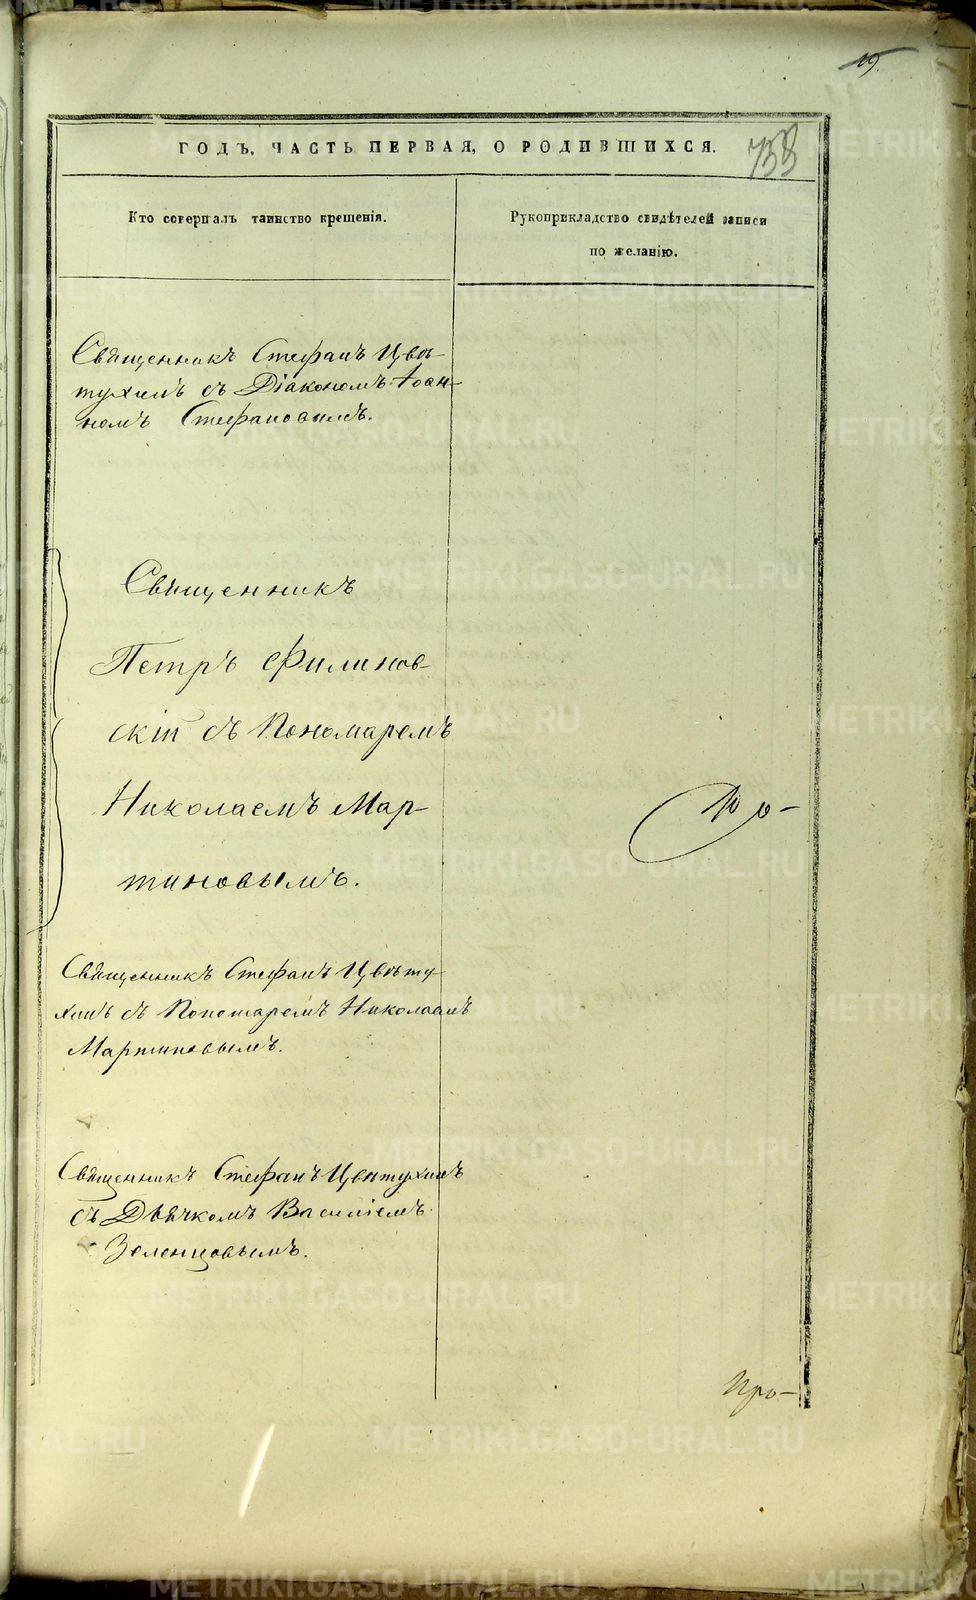 19.
ГОДЪ, ЧАСТЬ ПЕРВАЯ, О РОДИВШИХСЯ.
738
Кто совершалъ таинство крещенія.
Рукоприкладство свидѣтелей записи
по желанію.
Священникъ Стефанъ Цвѣ-
тухинъ съ Діакономъ Іоан-
номъ Стефановымъ.
Священникъ
Петръ Филинов-
скій съ Пономаремъ
Николаемъ Мар-
тиновымъ.
Священникъ Стефанъ Цвѣту-
хинъ съ Пономаремъ Николаемъ
Мартиновымъ.
Священникъ Стефанъ Цвѣтухинъ
съ Дьячкомъ Василіемъ
Зеленцовымъ.
Про-
METRIKI.GASO-URAL.RU